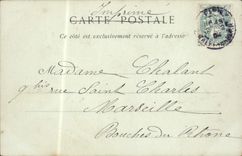 Imprimé
CARTE POSTALE
Ce côté est exclusivement réservé à l'adresse
Madame Chalant
9 bis rue Saint Charles
Marseille
Bouches du Rhône